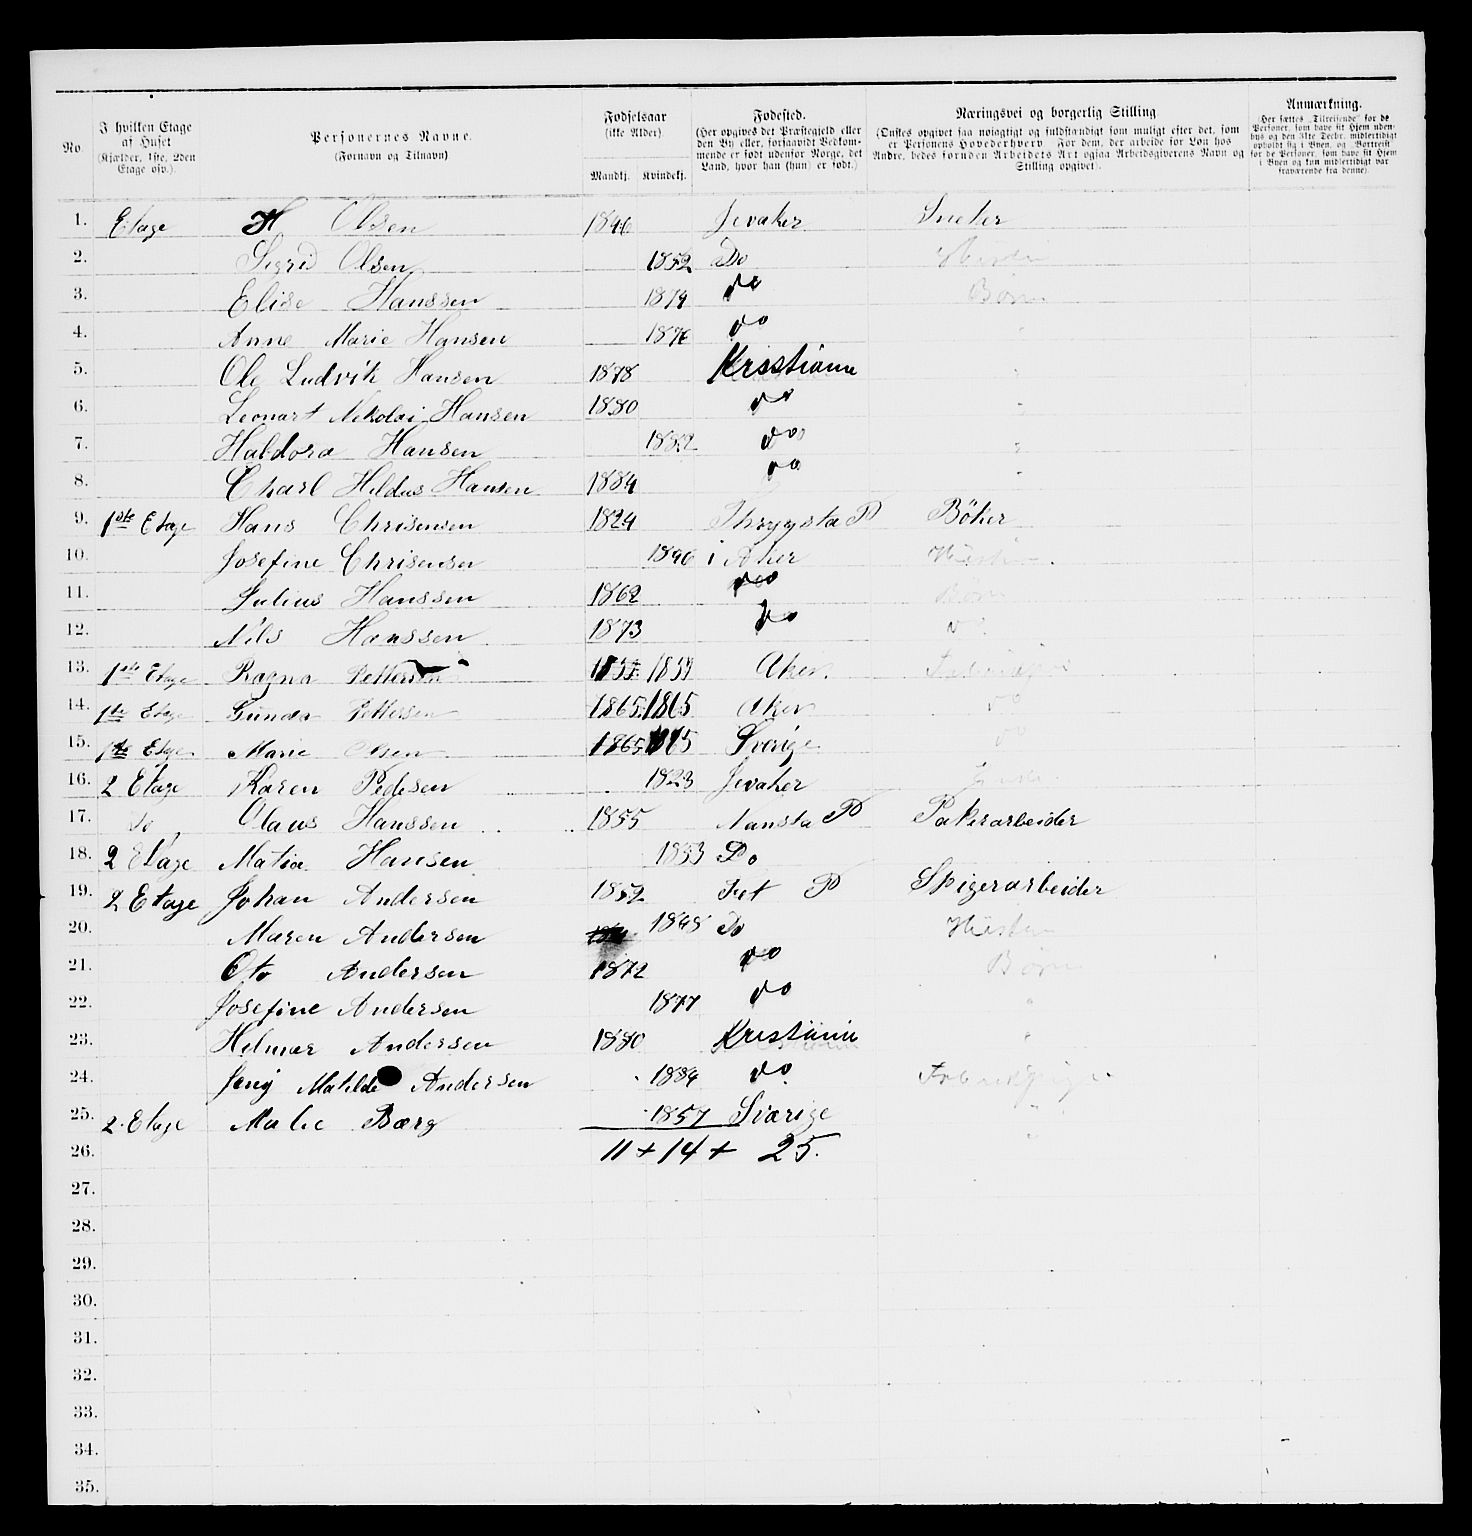 No.
I hvilken Etage af Huset (Kjælder, 1ste, 2den Etage osv.).
Personernes Navne. (Fornavn og Tilnavn)
Fødselsaar (ikke Alder). Mandkj. Kvindekj.
Fødested. (Her opgives det Præstegjeld eller den By eller, forsaavidt Vedkommende er født udenfor Norge, det Land, hvor han (hun) er født.)
Næringsvei og borgerlig Stilling (Ønskes opgivet saa nøiagtigt og fuldstændigt som muligt efter det, som er Personens Hovederhverv. For dem, der arbeide for Løn hos Andre, bedes foruden Arbeidets Art ogsaa Arbeidsgiverens Navn og Stilling opgivet).
Anmærkning. (Her sættes „Tilreisende“ for de Personer, som have sit Hjem udenbys og den 31te Decbr. midlertidigt opholdt sig i Byen, og „Bortreist“ for de Personer, som have sit Hjem i Byen og kun midlertidigt var fraværende fra denne).
1. Etage H Olsen 1846 Jevaker Sneker
2. Sigrid Olsen 1852 Do Hustru
3. Elise Hanssen 1874 do Børn
4. Anne Marie Hansen 1876 do "
5. Ole Ludvik Hansen 1878 Kristiania "
6. Leonart Nikolai Hansen 1880 do "
7. Haldora Hansen 1882 do "
8. Charl Hildus Hansen 1884 do "
9. 1ste Etage Hans Chrisensen 1824 P Böker
10. Josefine Chrisensen i Aker Hustru
11. Julius Hanssen 1862 do Børn
12. Nils Hanssen 1873 do do
13. 1ste Etage Ragna Pettersen 1859 Aker
14. 1ste Etage Gunda Pettersen 1865 1865 Aker do
15. 1ste Etage Marie Olsen 1865 1865 Sverige do
16. 2 Etage Karen Pedesen 1823 Jevaker
17. do Olaus Hanssen 1855 Nansta P Pakerarbeider
18. 2 Etage Matia Hansen 1853 Do
19. 2 Etage Johan Andersen 1852 Fet P Spigerarbeider
20. Maren Andersen 1848 Do Hustru
21. Oto Andersen 1872 do Børn
22. Josefine Andersen 1877 do "
23. Helmar Andersen 1880 Kristiania "
24. Jeny Matilde Andersen 1884 do
25. 2 Etage Malie Bærg 1857 Sværige "
26. 11 + 14 + 25. "
27.
28.
29.
30.
31.
32.
33.
34.
35.